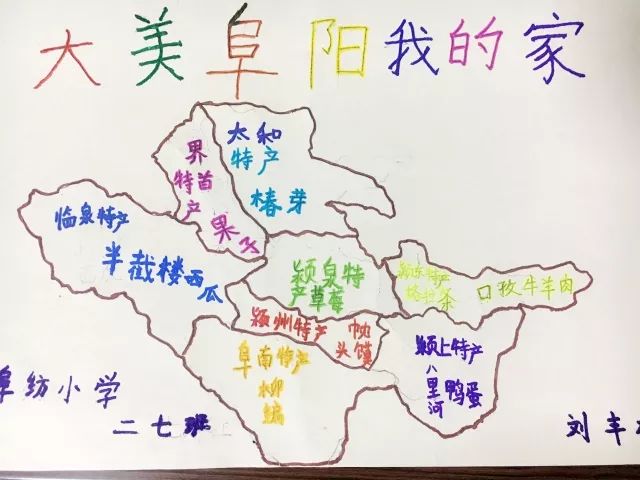 大美阜阳我的家
太和
特产
椿芽
界
特首
产
果子
临泉特产
半截楼西瓜
颍泉特
产草莓
颍东特产
格拉条
口孜牛羊肉
颍州特产
枕
头馍
阜南特产
柳
编
颍上特产
八里河
鸭蛋
阜纺小学
二七班
刘丰